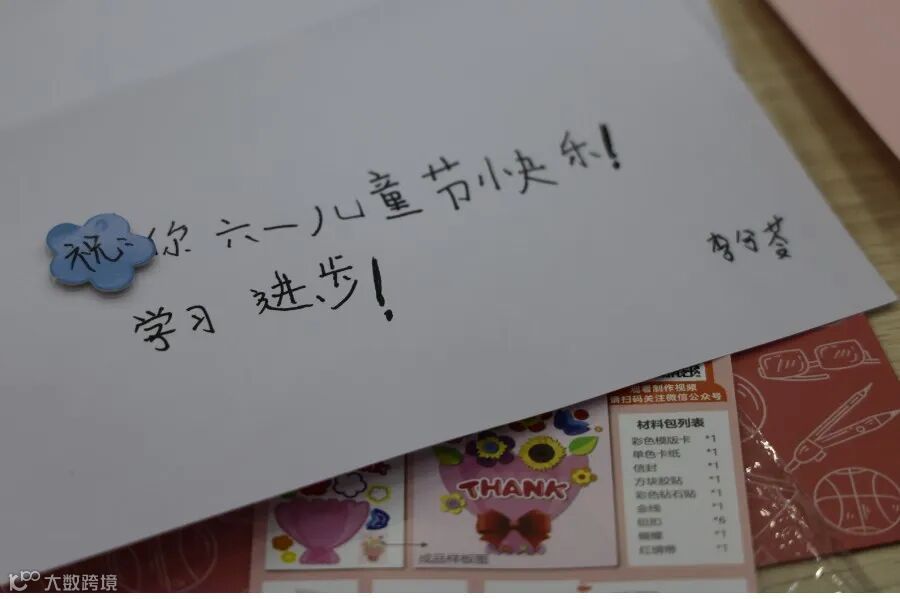 祝你六一儿童节快乐!
学习 进步!
观看制作视频
请扫码关注微信公众号
材料包列表
彩色模版卡 *1
单色卡纸 *1
信封 *1
方块胶贴 *1
彩色钻石贴 *1
金线 *1
纽扣 *6
蝴蝶 *1
红绸带 *1
THANK
成品样板图
大数跨境